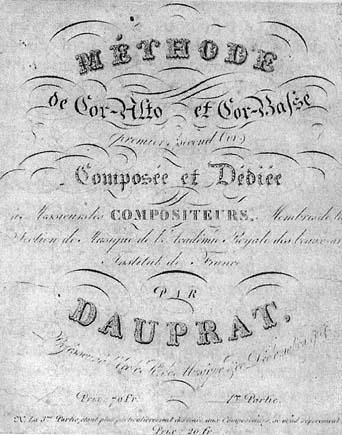 MÉTHODE
de Cor-Alto et Cor-Basse
(premier et second Cor)
Composée et Dédiée
à Messieurs les COMPOSITEURS, Membres de la
Section de Musique de l'Académie Royale des beaux-ar
Institut de France
PAR
DAUPRAT,
Prix: 70 fr. 1re Partie.
Na. La 3e Partie, étant plus particulièrement destinée aux Compositeurs, se vend séparément
Prix: 20 fr.